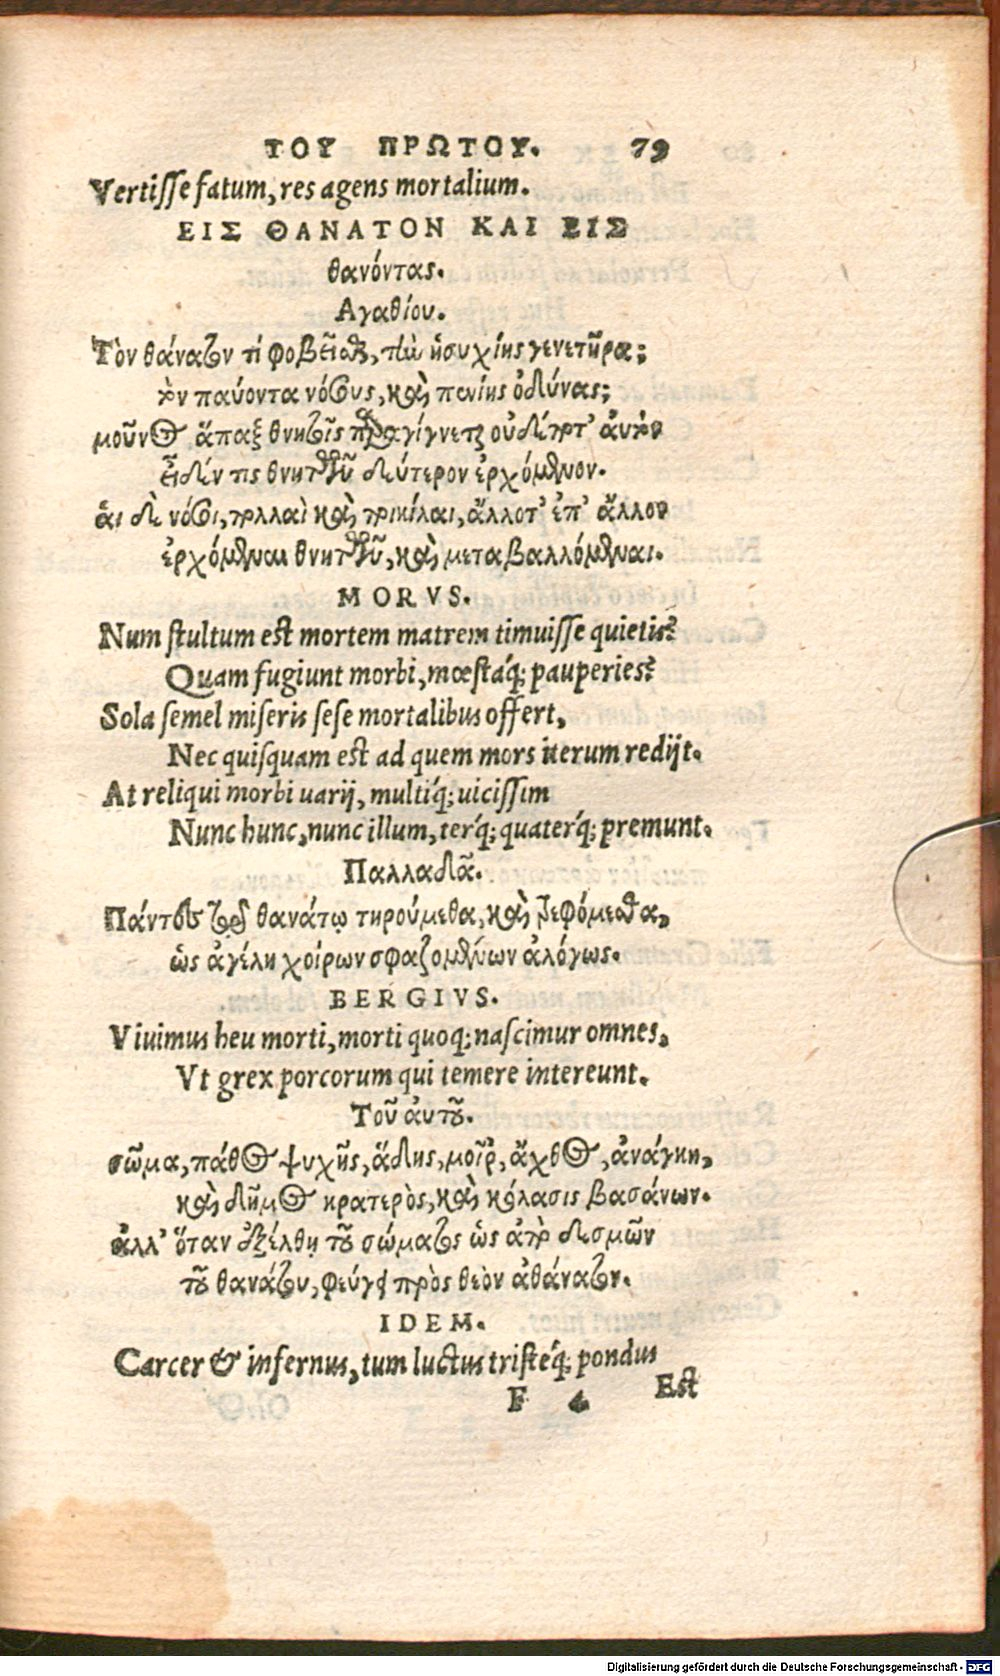 ΤΟΥ ΠΡΩΤΟΥ. 79
Vertisse fatum, res agens mortalium.
ΕΙΣ ΘΑΝΑΤΟΝ ΚΑΙ ΕΙΣ
θανόντας.
Αγαθίου.
Τὸν θάνατον τί φοβεῖσθε, τὴν ἡσυχίης γενετῆρα;
τὸν παύοντα νόσους, καὶ πενίης ὀδύνας;
μοῦνον ἅπαξ θνητοῖς παραγίγνεται, οὐδέ ποτ' αὐτὸν
εἶδέν τις θνητῶν δεύτερον ἐρχόμενον.
αἱ δὲ νόσοι, πολλαὶ καὶ ποικίλαι, ἄλλοτ' ἐπ' ἄλλον
ἐρχόμεναι θνητῶν, καὶ μεταβαλλόμεναι.
MORVS.
Num stultum est mortem matrem timuisse quietis?
Quam fugiunt morbi, mœstáq; pauperies?
Sola semel miseris sese mortalibus offert,
Nec quisquam est ad quem mors iterum redijt.
At reliqui morbi uarij, multíq; uicissim
Nunc hunc, nunc illum, térq; quatérq; premunt.
Παλλαδᾶ.
Πάντες τῷ θανάτῳ τηρούμεθα, καὶ τρεφόμεσθα,
ὡς ἀγέλη χοίρων σφαζομένων ἀλόγως.
BERGIVS.
Viuimus heu morti, morti quoq; nascimur omnes,
Vt grex porcorum qui temere intereunt.
Τοῦ αὐτοῦ.
σῶμα, πάθος ψυχῆς, ᾅδης, μοῖρ', ἄχθος, ἀνάγκη,
καὶ δῆμος κρατερὸς, καὶ κόλασις βασάνων.
ἀλλ' ὅταν ἐξέλθῃ τοῦ σώματος ὡς ἀπὸ δεσμῶν
τοῦ θανάτου, φεύγει πρὸς θεὸν ἀθάνατον.
IDEM.
Carcer & infernus, tum luctus tristéq; pondus
F 4 Est
Digitalisierung gefördert durch die Deutsche Forschungsgemeinschaft - DFG